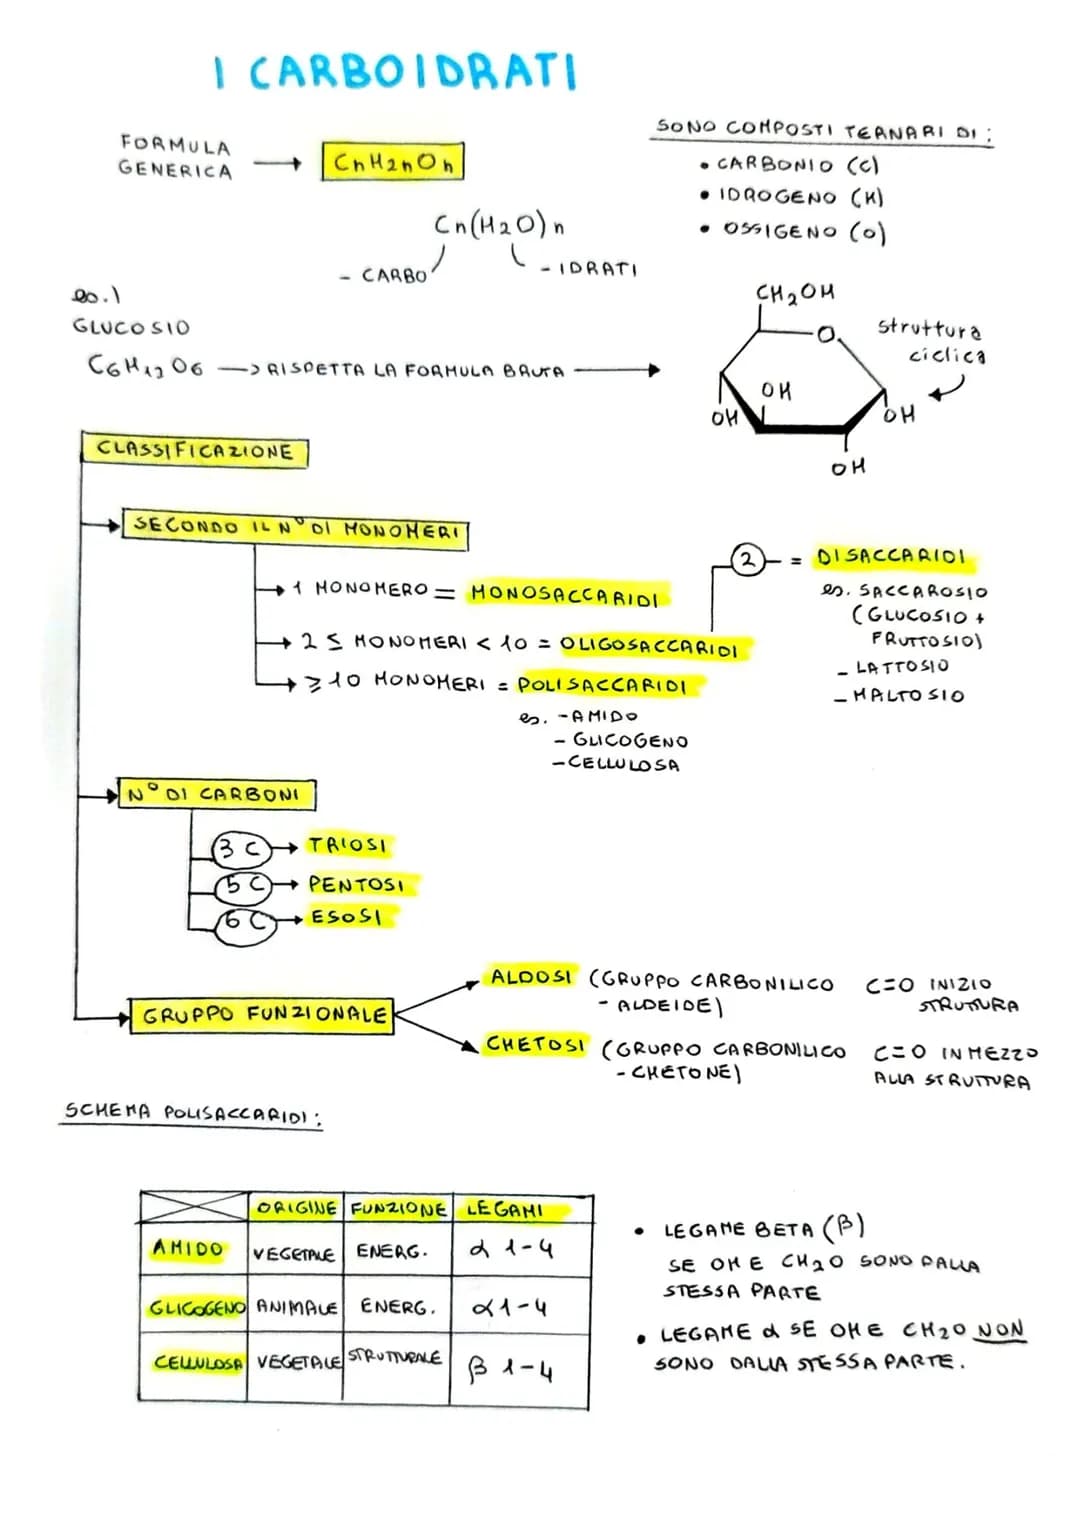 I CARBOIDRATI
FORMULA
GENERICA
CnH2nOn
SONO COMPOSTI TERNARI DI:
• CARBONIO (C)
• IDROGENO (H)
• OSSIGENO (O)
Cn(H2O)n
- CARBO
- IDRATI
es.1
GLUCOSIO
C6H12O6 → RISPETTA LA FORMULA BRUTA
CH2OH
O
struttura
ciclica
OH
OH
OH
OH
CLASSIFICAZIONE
SECONDO IL N° DI MONOMERI
1 MONOMERO = MONOSACCARIDI
2 ≤ MONOMERI < 10 = OLIGOSACCARIDI
≥ 10 MONOMERI = POLISACCARIDI
es. - AMIDO
- GLICOGENO
- CELLULOSA
2 = DISACCARIDI
es. SACCAROSIO
(GLUCOSIO +
FRUTTOSIO)
- LATTOSIO
- MALTOSIO
N° DI CARBONI
3 C → TRIOSI
5 C → PENTOSI
6 C → ESOSI
GRUPPO FUNZIONALE
ALDOSI (GRUPPO CARBONILICO C=O INIZIO
- ALDEIDE) STRUTTURA
CHETOSI (GRUPPO CARBONILICO C=O IN MEZZO
- CHETONE) ALLA STRUTTURA
SCHEMA POLISACCARIDI:
ORIGINE FUNZIONE LEGAMI
AMIDO VEGETALE ENERG. α 1-4
GLICOGENO ANIMALE ENERG. α 1-4
CELLULOSA VEGETALE STRUTTURALE β 1-4
• LEGAME BETA (β)
SE OH E CH2O SONO DALLA
STESSA PARTE
• LEGAME α SE OH E CH2O NON
SONO DALLA STESSA PARTE.